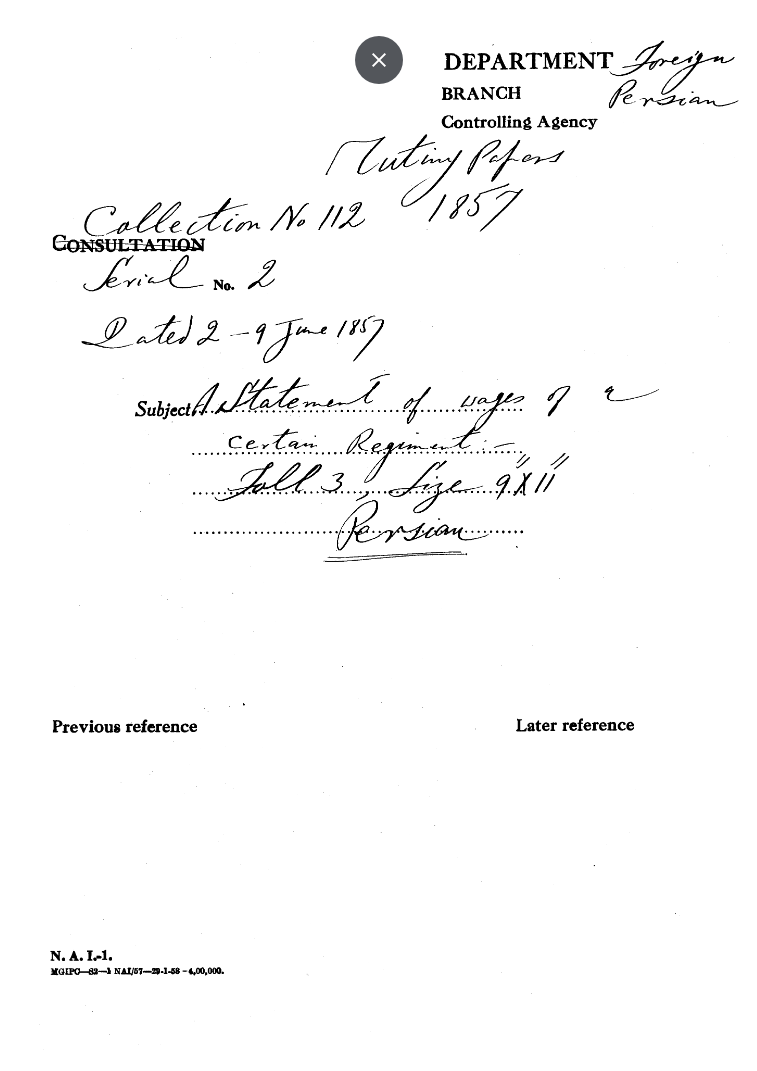 DEPARTMENT Foreign
BRANCH Persian
Controlling Agency
Mutiny Papers
1857
Collection No 112
CONSULTATION
Serial No. 2
Dated 2 - 9 June 1857
Subject A Statement of wages of a
certain Regiment :-
Foll 3, Size 9" X 11"
Persian
Previous reference
Later reference
N. A. I.-1.
MGIPC—82—1 NAI/57—29-1-58 - 4,00,000.